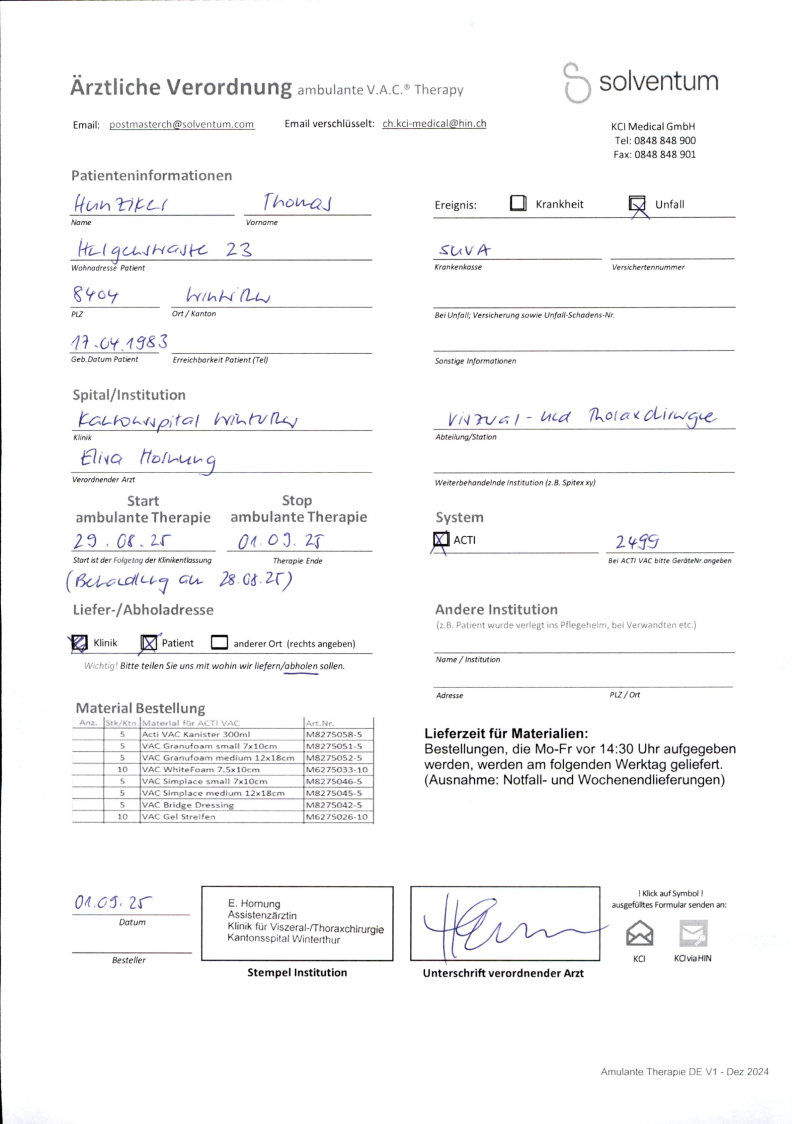 Ärztliche Verordnung ambulante V.A.C.® Therapy
solventum
Email: postmasterch@solventum.com Email verschlüsselt: ch.kci-medical@hin.ch
KCI Medical GmbH
Tel: 0848 848 900
Fax: 0848 848 901
Patienteninformationen
Hunziker Thomas
Name Vorname
Ereignis: Krankheit Unfall
23
Wohnadresse Patient
SUVA
Krankenkasse Versichertennummer
8404 Winterthur
PLZ Ort / Kanton
Bei Unfall; Versicherung sowie Unfall-Schadens-Nr.
17.04.1983
Geb.Datum Patient Erreichbarkeit Patient (Tel)
Sonstige Informationen
Spital/Institution
Kantonsspital Winterthur
Klinik
Viszeral- und Thoraxchirurgie
Abteilung/Station
Hornung
Verordnender Arzt
Weiterbehandelnde Institution (z.B. Spitex xy)
Start Stop
ambulante Therapie ambulante Therapie
System
29.08.25 01.09.25
ACTI 2499
Start ist der Folgetag der Klinikentlassung Therapie Ende
Bei ACTI VAC bitte GeräteNr.angeben
(Behandlung am 28.08.25)
Liefer-/Abholadresse
Klinik Patient anderer Ort (rechts angeben)
Wichtig! Bitte teilen Sie uns mit wohin wir liefern/abholen sollen.
Andere Institution
(z.B. Patient wurde verlegt ins Pflegeheim, bei Verwandten etc.)
Name / Institution
Adresse PLZ / Ort
Material Bestellung
Anz. Stk/Ktn. Material für ACTI VAC Art.Nr.
5 Acti VAC Kanister 300ml M8275058-5
5 VAC Granufoam small 7x10cm M8275051-5
5 VAC Granufoam medium 12x18cm M8275052-5
10 VAC WhiteFoam 7.5x10cm M6275033-10
5 VAC Simplace small 7x10cm M8275046-5
5 VAC Simplace medium 12x18cm M8275045-5
5 VAC Bridge Dressing M8275042-5
10 VAC Gel Streifen M6275026-10
Lieferzeit für Materialien:
Bestellungen, die Mo-Fr vor 14:30 Uhr aufgegeben
werden, werden am folgenden Werktag geliefert.
(Ausnahme: Notfall- und Wochenendlieferungen)
01.09.25
Datum
Besteller
E. Hornung
Assistenzärztin
Klinik für Viszeral-/Thoraxchirurgie
Kantonsspital Winterthur
Stempel Institution
Unterschrift verordnender Arzt
! Klick auf Symbol !
ausgefülltes Formular senden an:
KCI KCI via HIN
Amulante Therapie DE V1 - Dez 2024